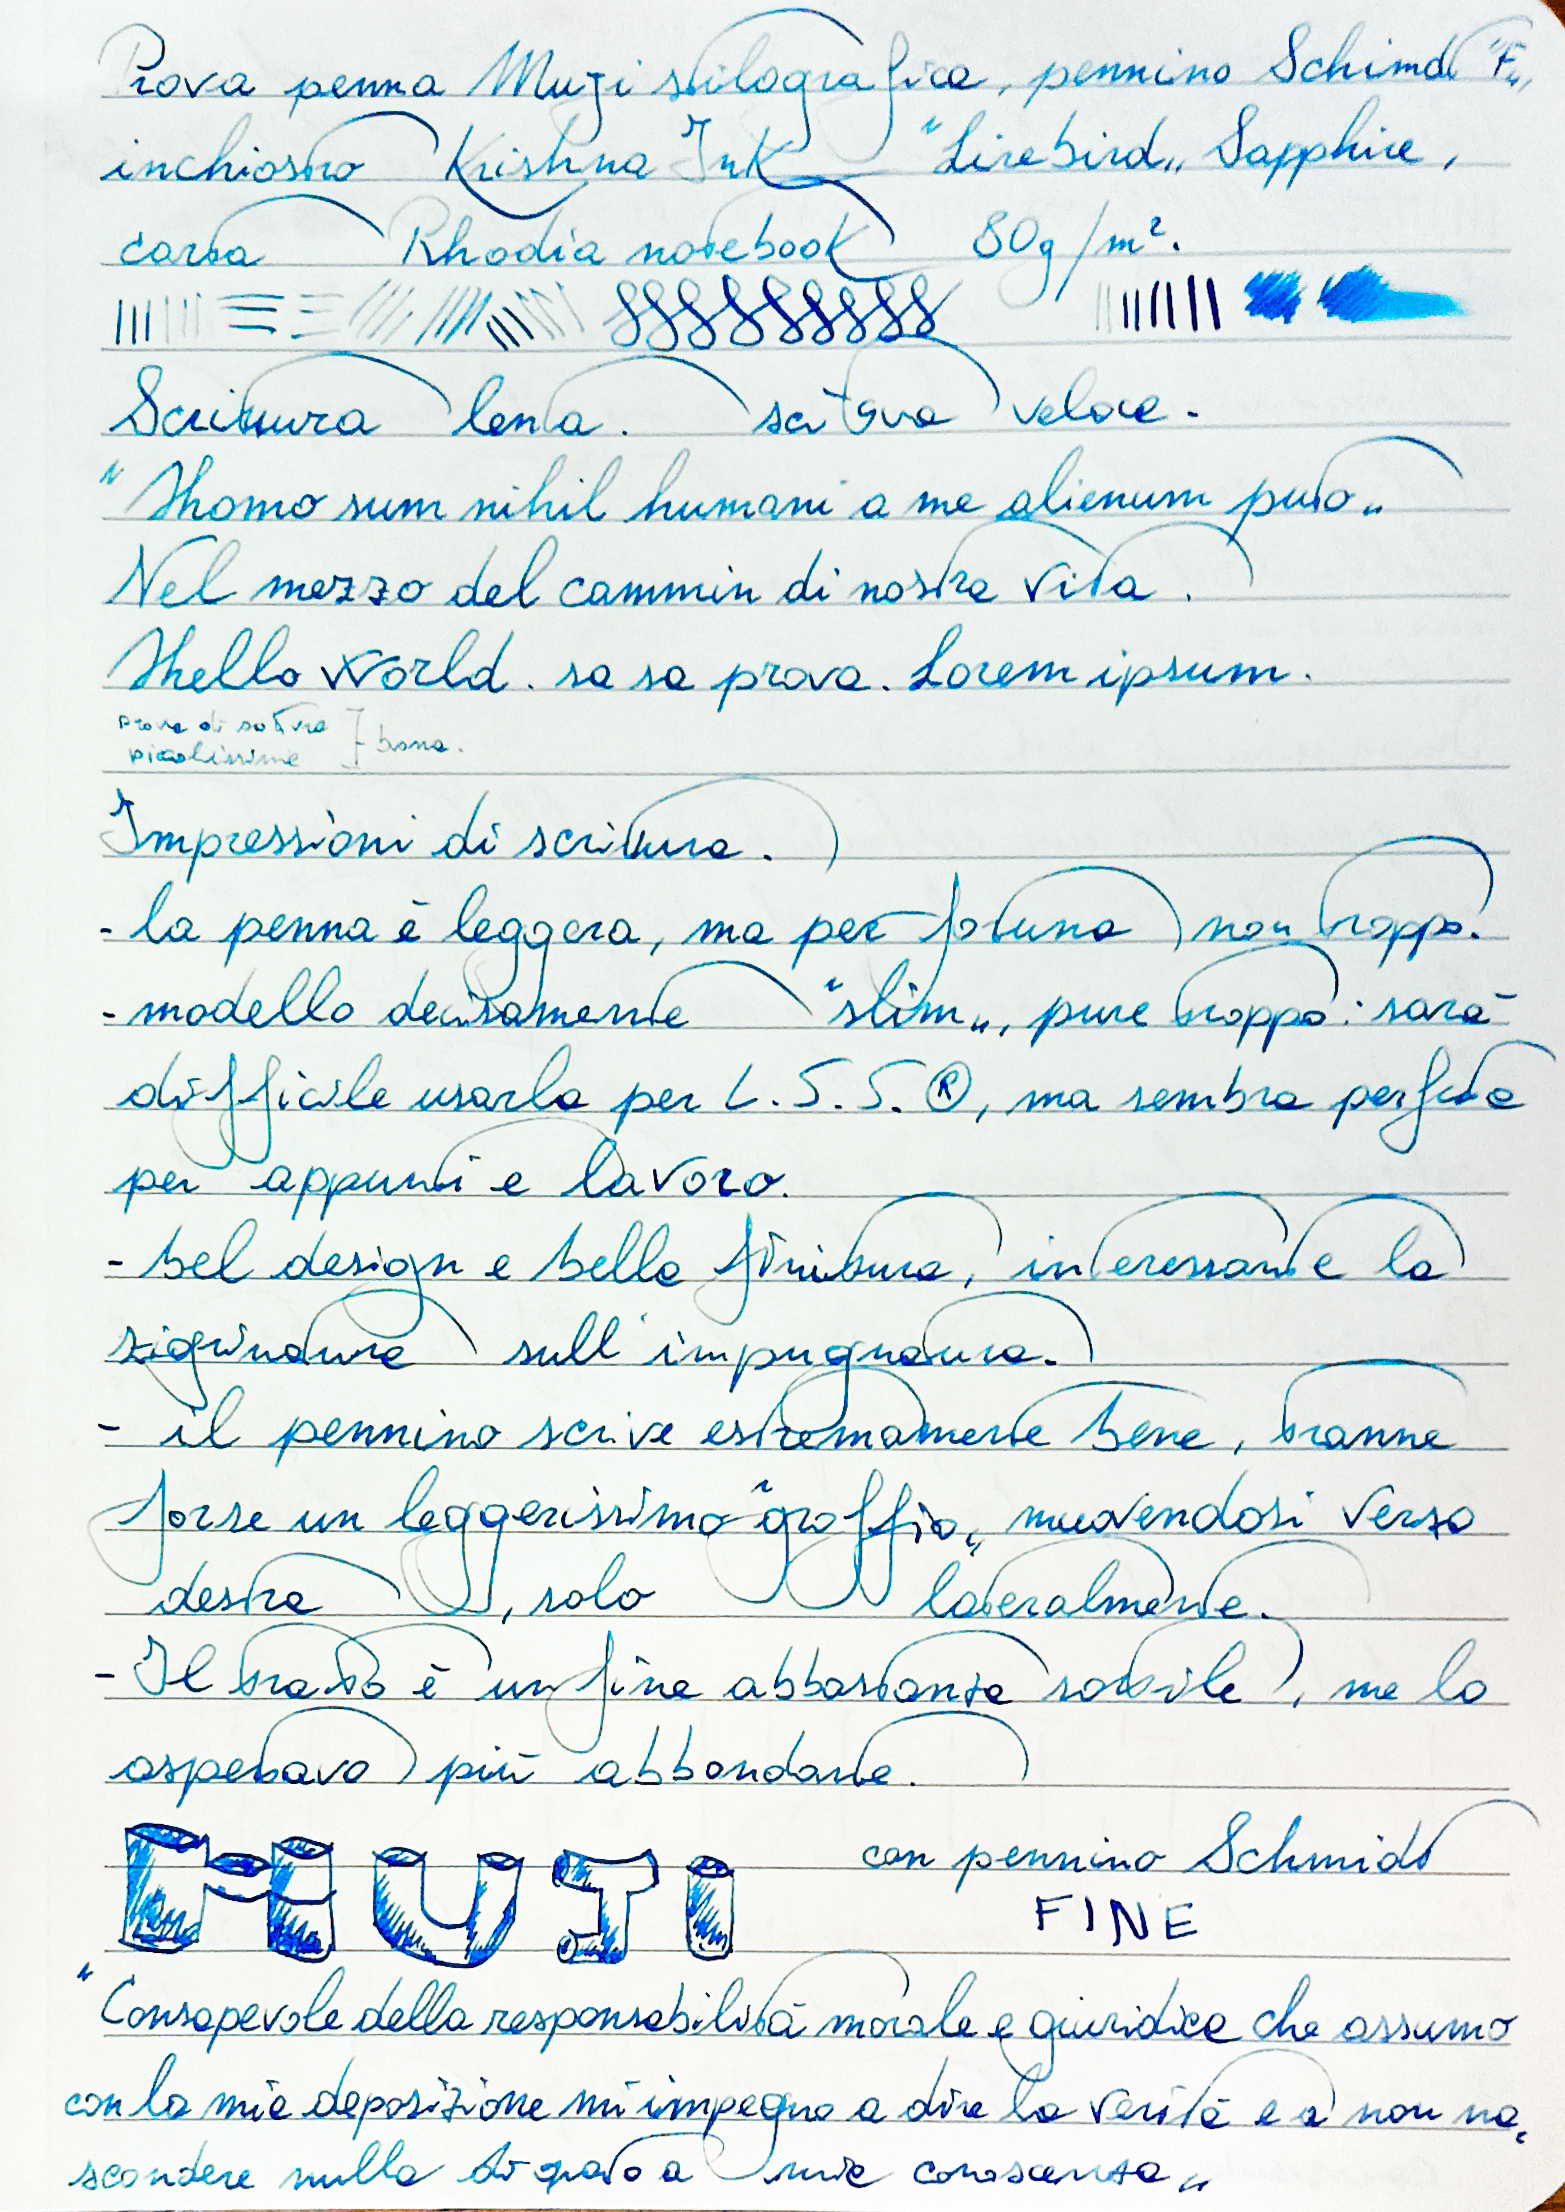 Prova penna Muji stilografica, pennino Schimdt "F",
inchiostro Krishna Ink "Lirebird" Sapphire,
carta Rhodia notebook 80g/m².
Scrittura lenta. scrittura veloce.
"Homo sum nihil humani a me alienum puto"
Nel mezzo del cammin di nostra vita.
Hello World. sa sa prova. Lorem ipsum.
prova di scrittura
piccolissima } buona.
Impressioni di scrittura.
- la penna è leggera, ma per fortuna non troppo.
- modello decisamente "slim", pure troppo: sarà
difficile usarla per L.S.S.®, ma sembra perfetta
per appunti e lavoro.
- bel design e bella finitura, interessante la
zigrinatura sull'impugnatura.
- il pennino scrive estremamente bene, tranne
forse un leggerissimo "graffio" muovendosi verso
destra, solo lateralmente.
- Il tratto è un fine abbastanza sottile, ma lo
aspettavo più abbondante.
MUJI con pennino Schmidt
FINE
"Consapevole della responsabilità morale e giuridica che assumo
con la mia deposizione mi impegno a dire la verità e a non na-
scondere nulla di quanto a mia conoscenza"